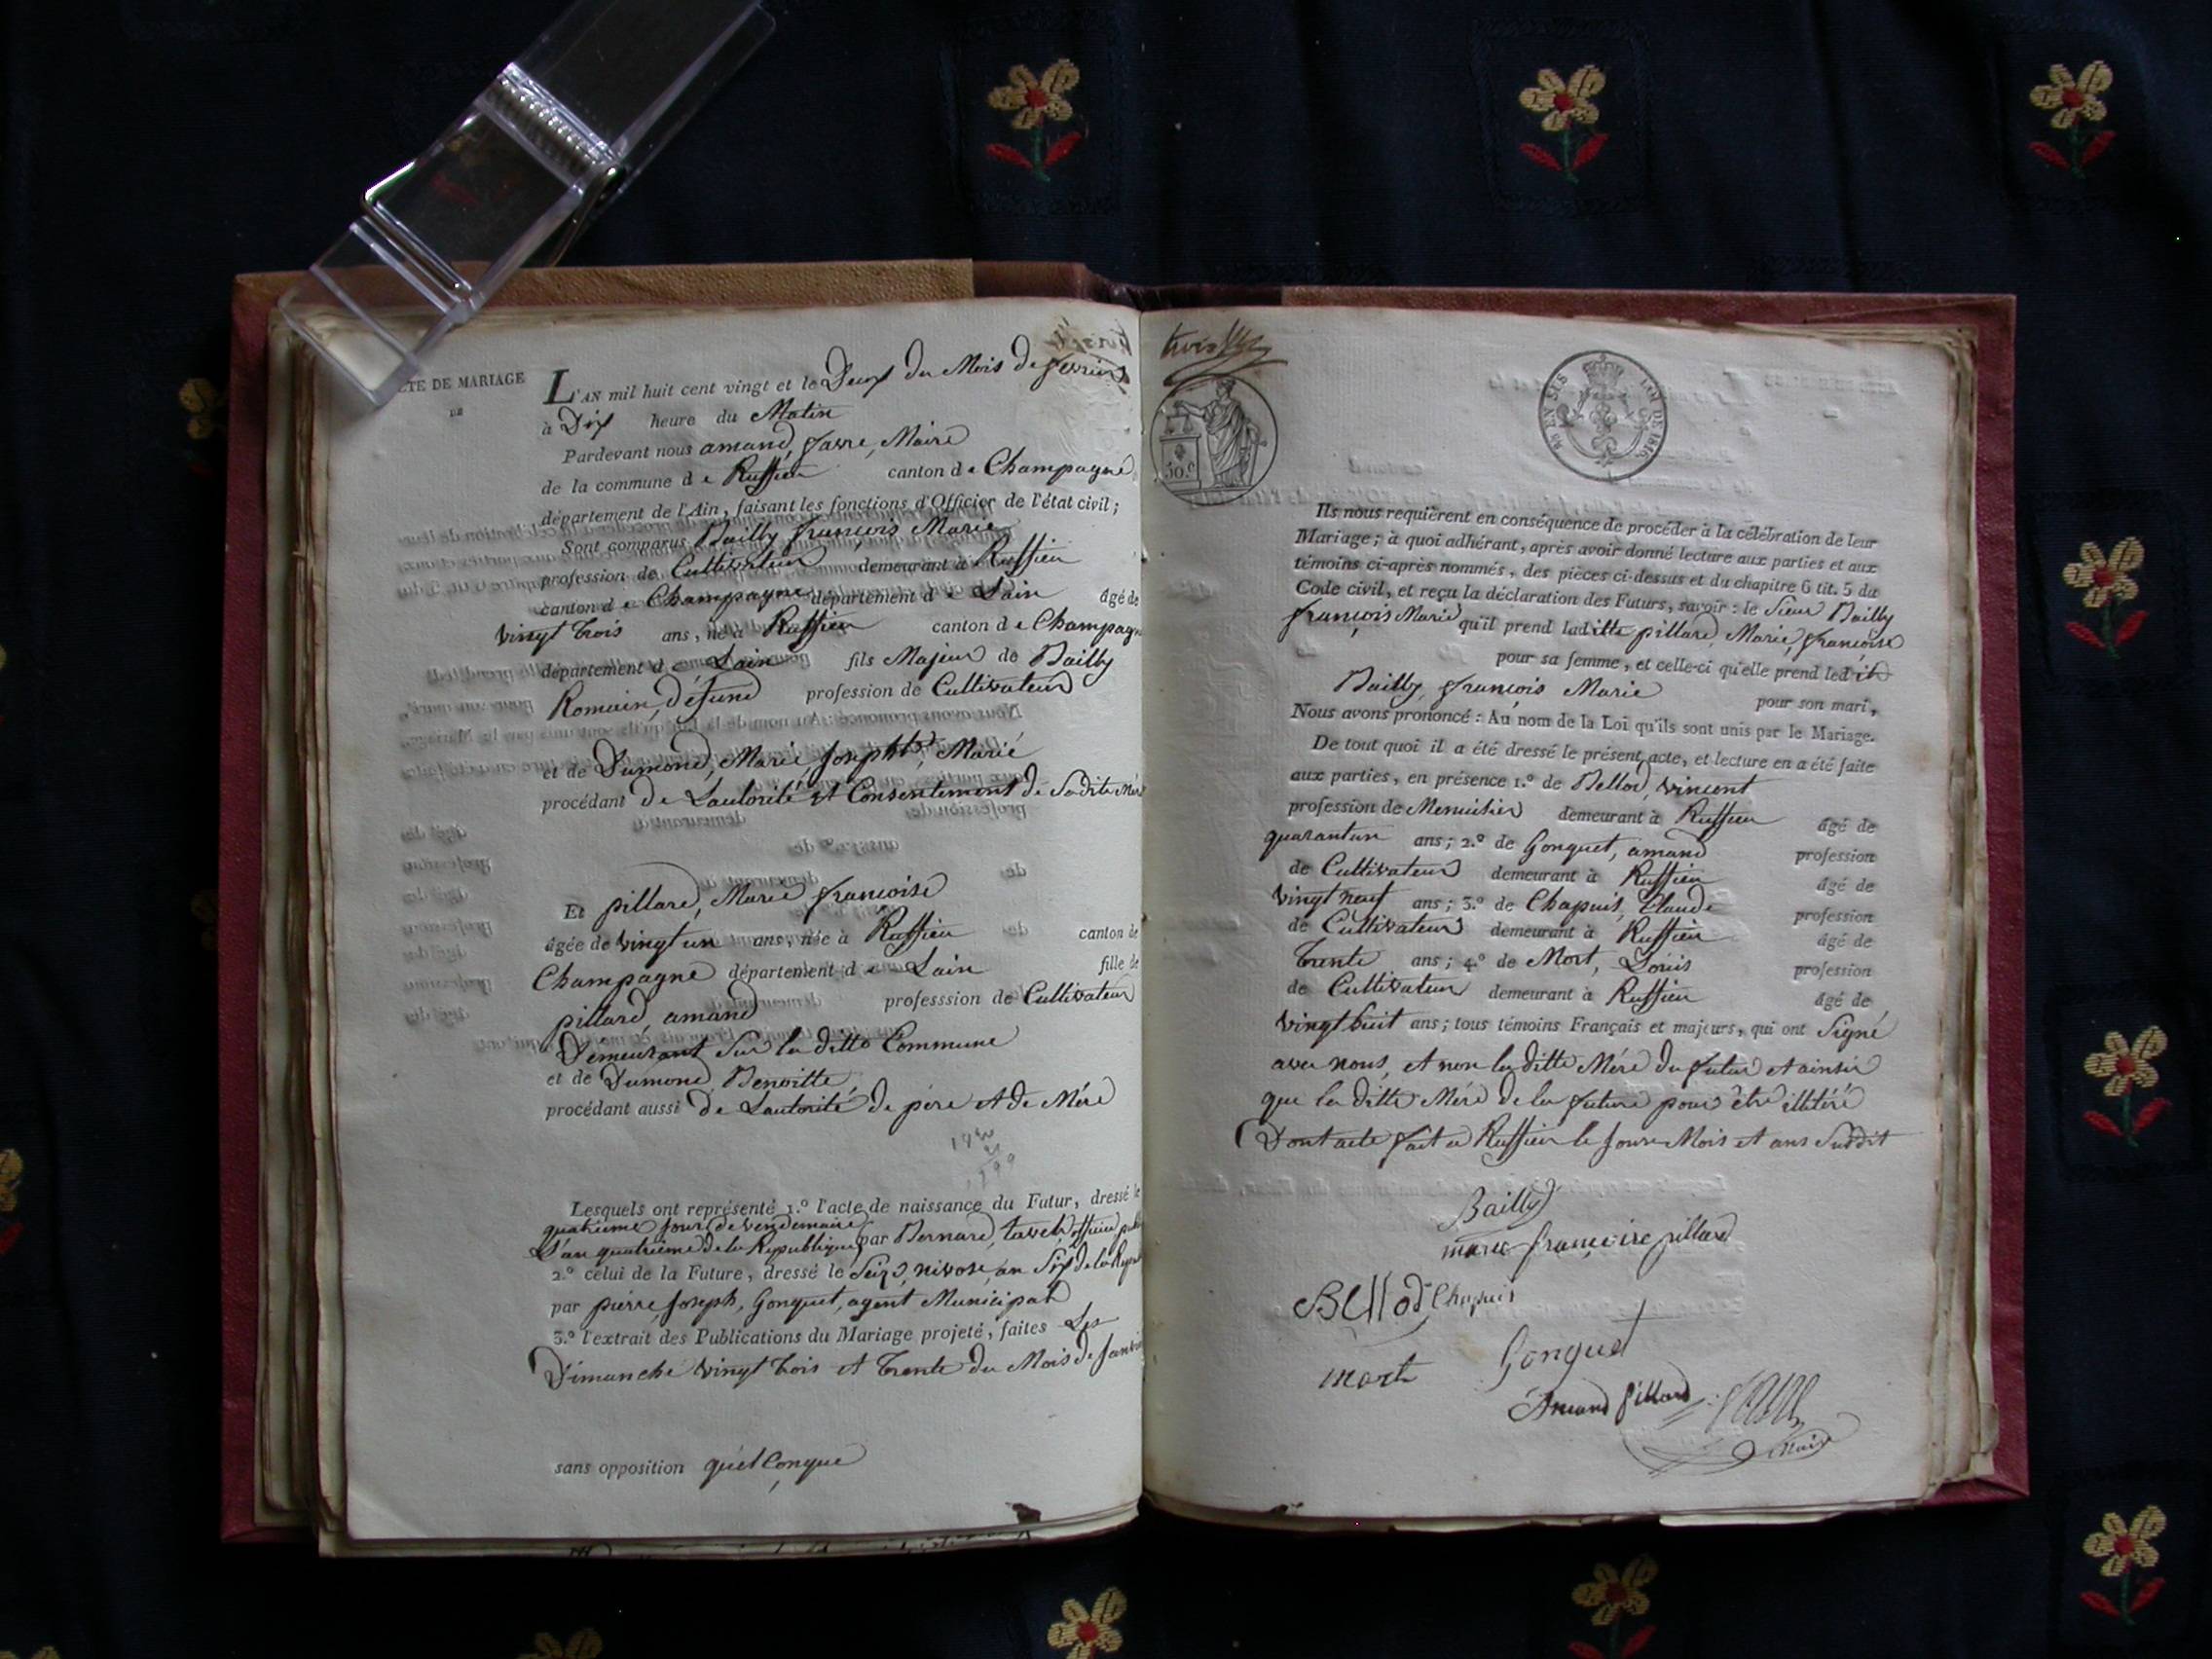 ACTE DE MARIAGE
DE
L'AN mil huit cent vingt et le Deux du Mois de fevrier
à Dix heure du Matin
Pardevant nous amand, favre, Maire
de la commune de Ruffieu canton de Champagne
département de l'Ain, faisant les fonctions d'Officier de l'état civil;
Sont comparus Bailly françois Marie
profession de Cultivateur demeurant à Ruffieu
canton de Champagne département de Lain âgé de
vingt trois ans, né à Ruffieu canton de Champagne
département de Lain fils Majeur de Bailly
Romain, défund profession de Cultivateur
et de Dumond, Marie, Josephte, Marié
procédant de Lautorité et Consentement de Sadite Mère
Et pillard, Marie françoise
âgée de vingt un ans, née à Ruffieu canton de
Champagne département de Lain fille de
pillard, amand professsion de Cultivateur
Demeurant Sur la ditte Commune
et de Dumond, Benoitte,
procédant aussi de Lautorité de père et de Mére
Lesquels ont représenté 1.º l'acte de naissance du Futur, dressé le
quatrieme jour de vendemaire
L'an quatrième de la Republique par Bernard, officier
2.º celui de la Future, dressé le Seize nivose, an Six de la
par pierre Joseph, Gonguet, agent Municipal
3.º l'extrait des Publications du Mariage projeté, faites Les
Dimanche vingt trois et trente du Mois de Janvier
sans opposition quelconque
trois
50.c
EN SUS LOI DE 1816
Ils nous requièrent en conséquence de procéder à la célébration de leur
Mariage; à quoi adhérant, après avoir donné lecture aux parties et aux
témoins ci-après nommés, des pièces ci-dessus et du chapitre 6 tit. 5 du
Code civil, et reçu la déclaration des Futurs, savoir: le Sieur Bailly
françois Marie qu'il prend laditte pillard, Marie, françoise
pour sa femme, et celle-ci qu'elle prend ledit
Bailly, françois Marie pour son mari,
Nous avons prononcé: Au nom de la Loi qu'ils sont unis par le Mariage.
De tout quoi il a été dressé le présent acte, et lecture en a été faite
aux parties, en présence 1.º de Bellod, vincent
profession de Menuisier demeurant à Ruffieu âgé de
quarantun ans; 2.º de Gonguet, amand profession
de Cultivateur demeurant à Ruffieu âgé de
vingt neuf ans; 3.º de Chapuis, Claude profession
de Cultivateur demeurant à Ruffieu âgé de
trente ans; 4.º de Mort, Louis profession
de Cultivateur demeurant à Ruffieu âgé de
vingt huit ans; tous témoins Français et majeurs, qui ont Signé
avec nous, et non la ditte Mére du futur et ainsi
que la ditte Mére de la future pour être illitéré
Dont acte fait a Ruffieu le Jour Mois et ans Susdit
Bailly
marie françoise pillard
Bellod Chapuis
mort Gonguet
Amand pillard favre
Maire